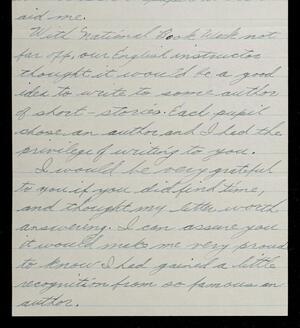 aid me.
With National Book Week not
far off, our English instructor
thought it would be a good
idea to write to some author
of short-stories. Each pupil
chose an author and I had the
privilege of writing to you.
I would be very grateful
to you if you did find time,
and thought my letter worth
answering. I can assure you
it would make me very proud
to know I had gained a little
recognition from so famous an
author.